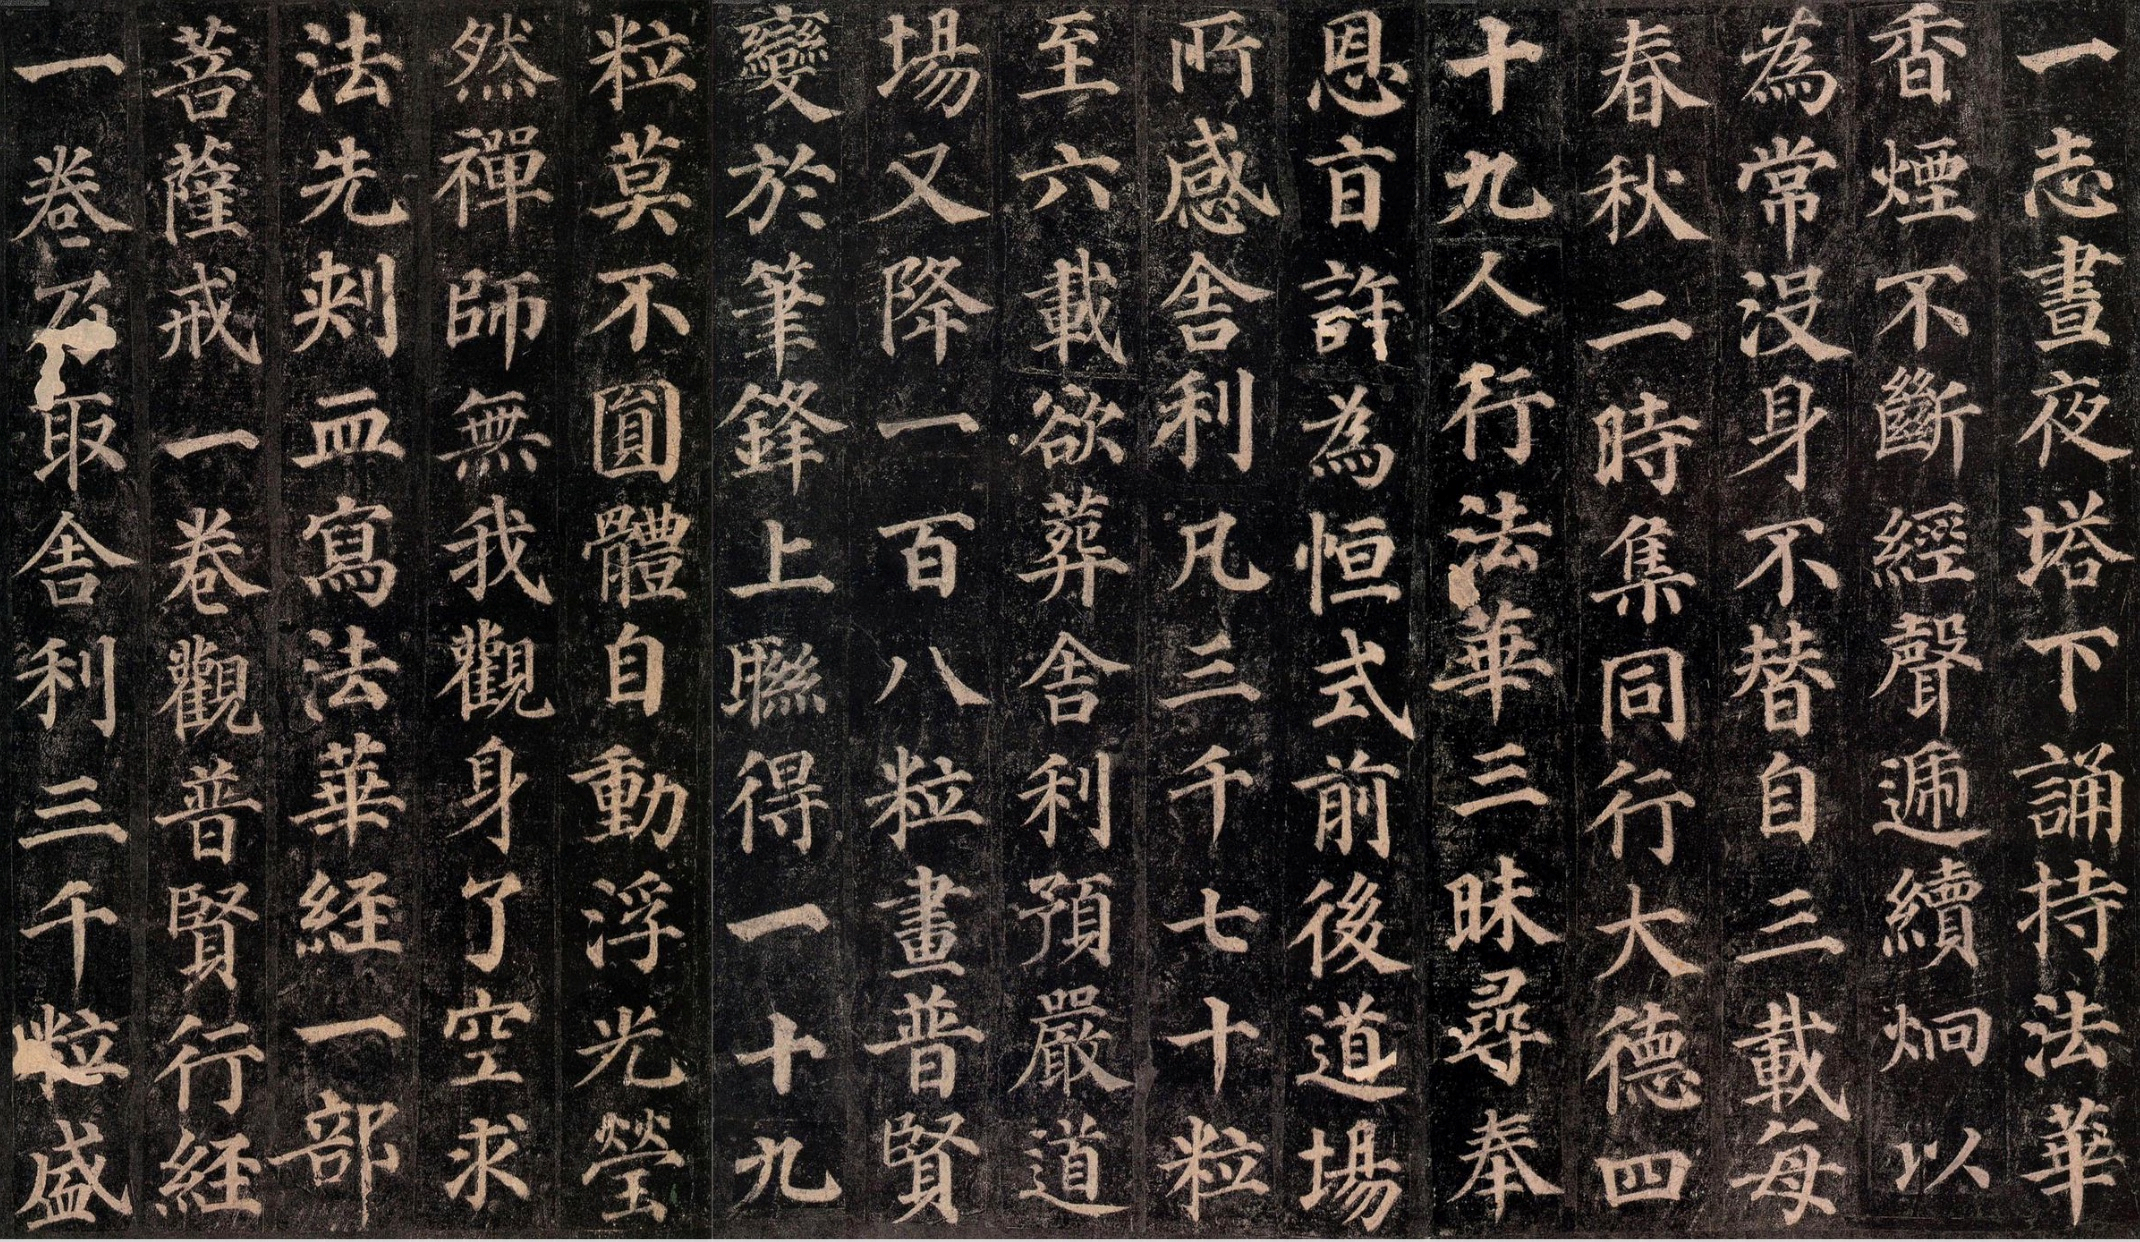 一志晝夜塔下誦持法華
香煙不斷經聲遞續炯以
為常沒身不替自三載每
春秋二時集同行大德四
十九人行法華三昧尋奉
恩旨許為恒式前後道場
所感舍利凡三千七十粒
至六載欲葬舍利預嚴道
場又降一百八粒畫普賢
變於筆鋒上聯得一十九
粒莫不圓體自動浮光瑩
然禪師無我觀身了空求
法先刾血寫法華経一部
菩薩戒一卷觀普賢行経
一卷乃取舍利三千粒盛